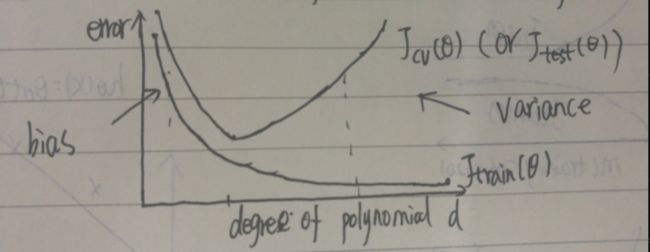 error
J_cv(θ) (or J_test(θ))
bias
variance
J_train(θ)
degree of polynomial d